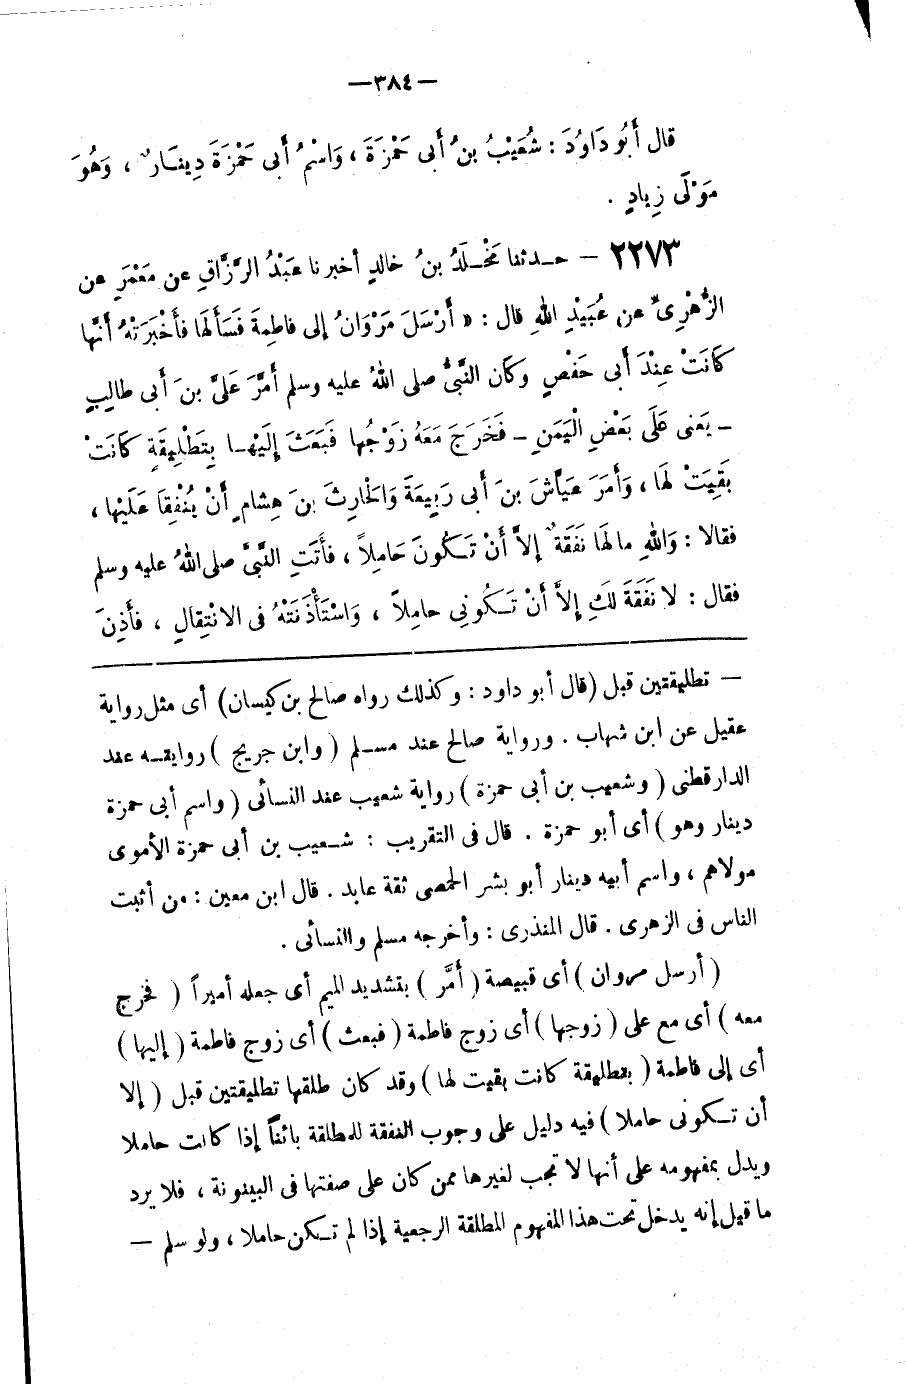 —٣٨٤—
قال أَبُو دَاوُدَ : شُعَيْبُ بنُ أَبى حَمْزَةَ ، وَاسْمُ أَبى حَمْزَةَ دِينَارٌ ، وَهُوَ
مَوْلَى زِيادٍ .
٢٢٧٣ — حـدثنا مَخْـلَدُ بنُ خالدٍ أخبرنا عَبْدُ الرَّزَّاقِ عن مَعْمَرٍ عن
الزُّهْرِىِّ عن عُبَيْدِ اللهِ قال : « أَرْسَلَ مَرْوَانُ إلى فاطِمَةَ فَسَأَلَهَا فأَخْبَرَتْهُ أَنَّها
كَانَتْ عِنْدَ أَبى حَفْصٍ وكَان النَّبىُّ صلى اللهُ عليه وسلم أَمَّرَ عَلِىَّ بنَ أَبى طالِبٍ
ـ يَعنى عَلَى بَعْضِ الْيَمَنِ ـ فَخَرَجَ مَعَهُ زَوْجُها فَبَعَثَ إِلَيْهـا بِتَطْلِيقَةٍ كَانَتْ
بَقِيَتْ لَهَا ، وَأَمَرَ عَيَّاشَ بنَ أَبى رَبِيعَةَ وَالْحارِثَ بنَ هِشامٍ أَنْ يُنْفِقَا عَلَيْها ،
فقالا : وَاللهِ مالهَا نَفَقَةٌ إلاَّ أَنْ تَـكُونَ حَامِلاً ، فأَتَتِ النَّبىَّ صلى اللهُ عليه وسلم
فقال : لا نَفَقَةَ لَكِ إِلاَّ أَنْ تَـكُونِى حاملاً ، وَاسْتَأْذَنَتْهُ فى الانْتِقالِ ، فأَذِنَ
— تطليقتين قبل (قال أبو داود : وكذلك رواه صالح بن كيسان) أى مثل رواية
عقيل عن ابن شهاب . ورواية صالح عند مسـلم ( وابن جريج ) روايتـه عند
الدارقطنى ( وشعيب بن أبى حمزة ) رواية شعيب عند النسائى ( واسم أبى حمزة
دينار وهو ) أى أبو حمزة . قال فى التقريب : شـعيب بن أبى حمزة الأموى
مولاهم ، واسم أبيه دينار أبو بشر الحمصى ثقة عابد . قال ابن معين : من أثبت
الناس فى الزهرى . قال المنذرى : وأخرجه مسلم والنسائى .
( أرسل مروان ) أى قبيصة ( أَمَّر ) بتشديد الميم أى جعله أميراً ( فخرج
معه ) أى مع على ( زوجها ) أى زوج فاطمة ( فبعث ) أى زوج فاطمة ( إليها )
أى إلى فاطمة ( بتطليقة كانت بقيت لها ) وقد كان طلقها تطليقتين قبل ( إلا
أن تـكونى حاملا ) فيه دليل على وجوب النفقة للمطلقة بائناً إذا كانت حاملا
ويدل بمفهومه على أنها لا تجب لغيرها ممن كان على صفتها فى البينونة ، فلا يرد
ما قيل إنه يدخل تحت هذا المفهوم المطلقة الرجعية إذا لم تـكن حاملا ، ولو سلم —